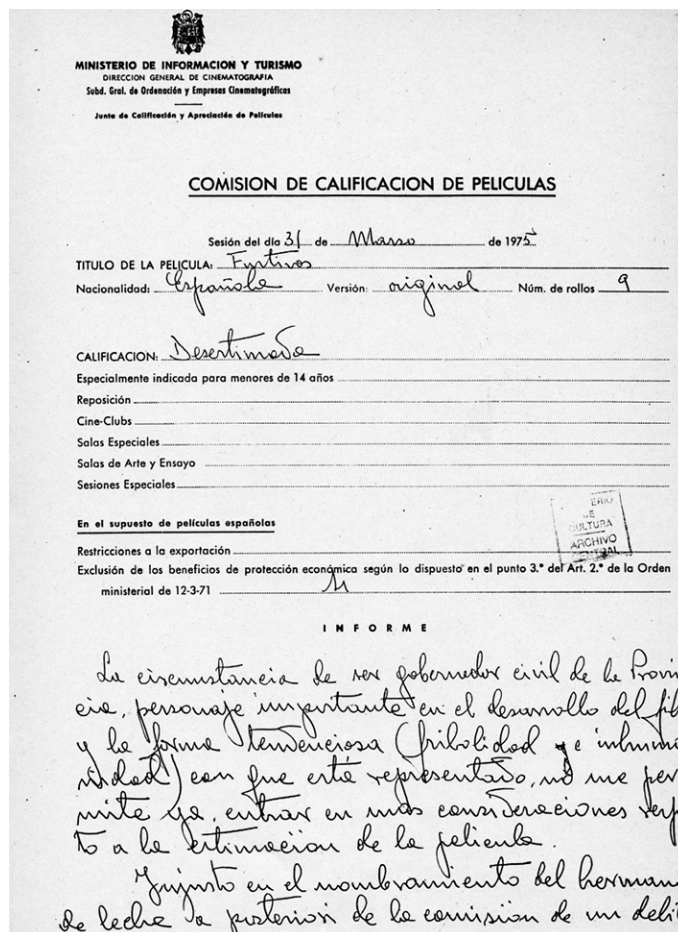 MINISTERIO DE INFORMACION Y TURISMO
DIRECCION GENERAL DE CINEMATOGRAFIA
Subd. Gral. de Ordenación y Empresas Cinematográficas
Junta de Calificación y Apreciación de Películas
COMISION DE CALIFICACION DE PELICULAS
Sesión del día 31 de Marzo de 1975
TITULO DE LA PELICULA: Furtivos
Nacionalidad: Española Versión: original Núm. de rollos 9
CALIFICACION: Desestimada
Especialmente indicada para menores de 14 años
Reposición
Cine-Clubs
Salas Especiales
Salas de Arte y Ensayo
Sesiones Especiales
ERIO
DE
CULTURA
ARCHIVO
CENTRAL
En el supuesto de películas españolas
Restricciones a la exportación
Exclusión de los beneficios de protección económica según lo dispuesto en el punto 3.º del Art. 2.º de la Orden
ministerial de 12-3-71
INFORME
La circunstancia de ser gobernador civil de la Provin
cia, personaje importante en el desarrollo del
y la forma tendenciosa (fribolidad e
) con que está representado, no me per
mite ya, entrar en más consideraciones
to a la estimación de la película.
Injusto en el nombramiento del herman
de leche a posteriori de la comisión de un deli